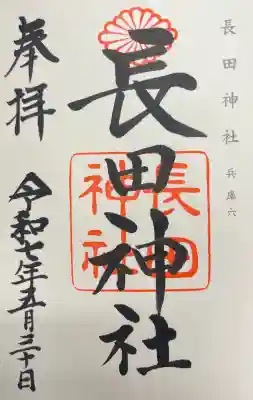 長田神社 兵庫六
長田神社
長田神社
奉拝
令和七年五月三十日